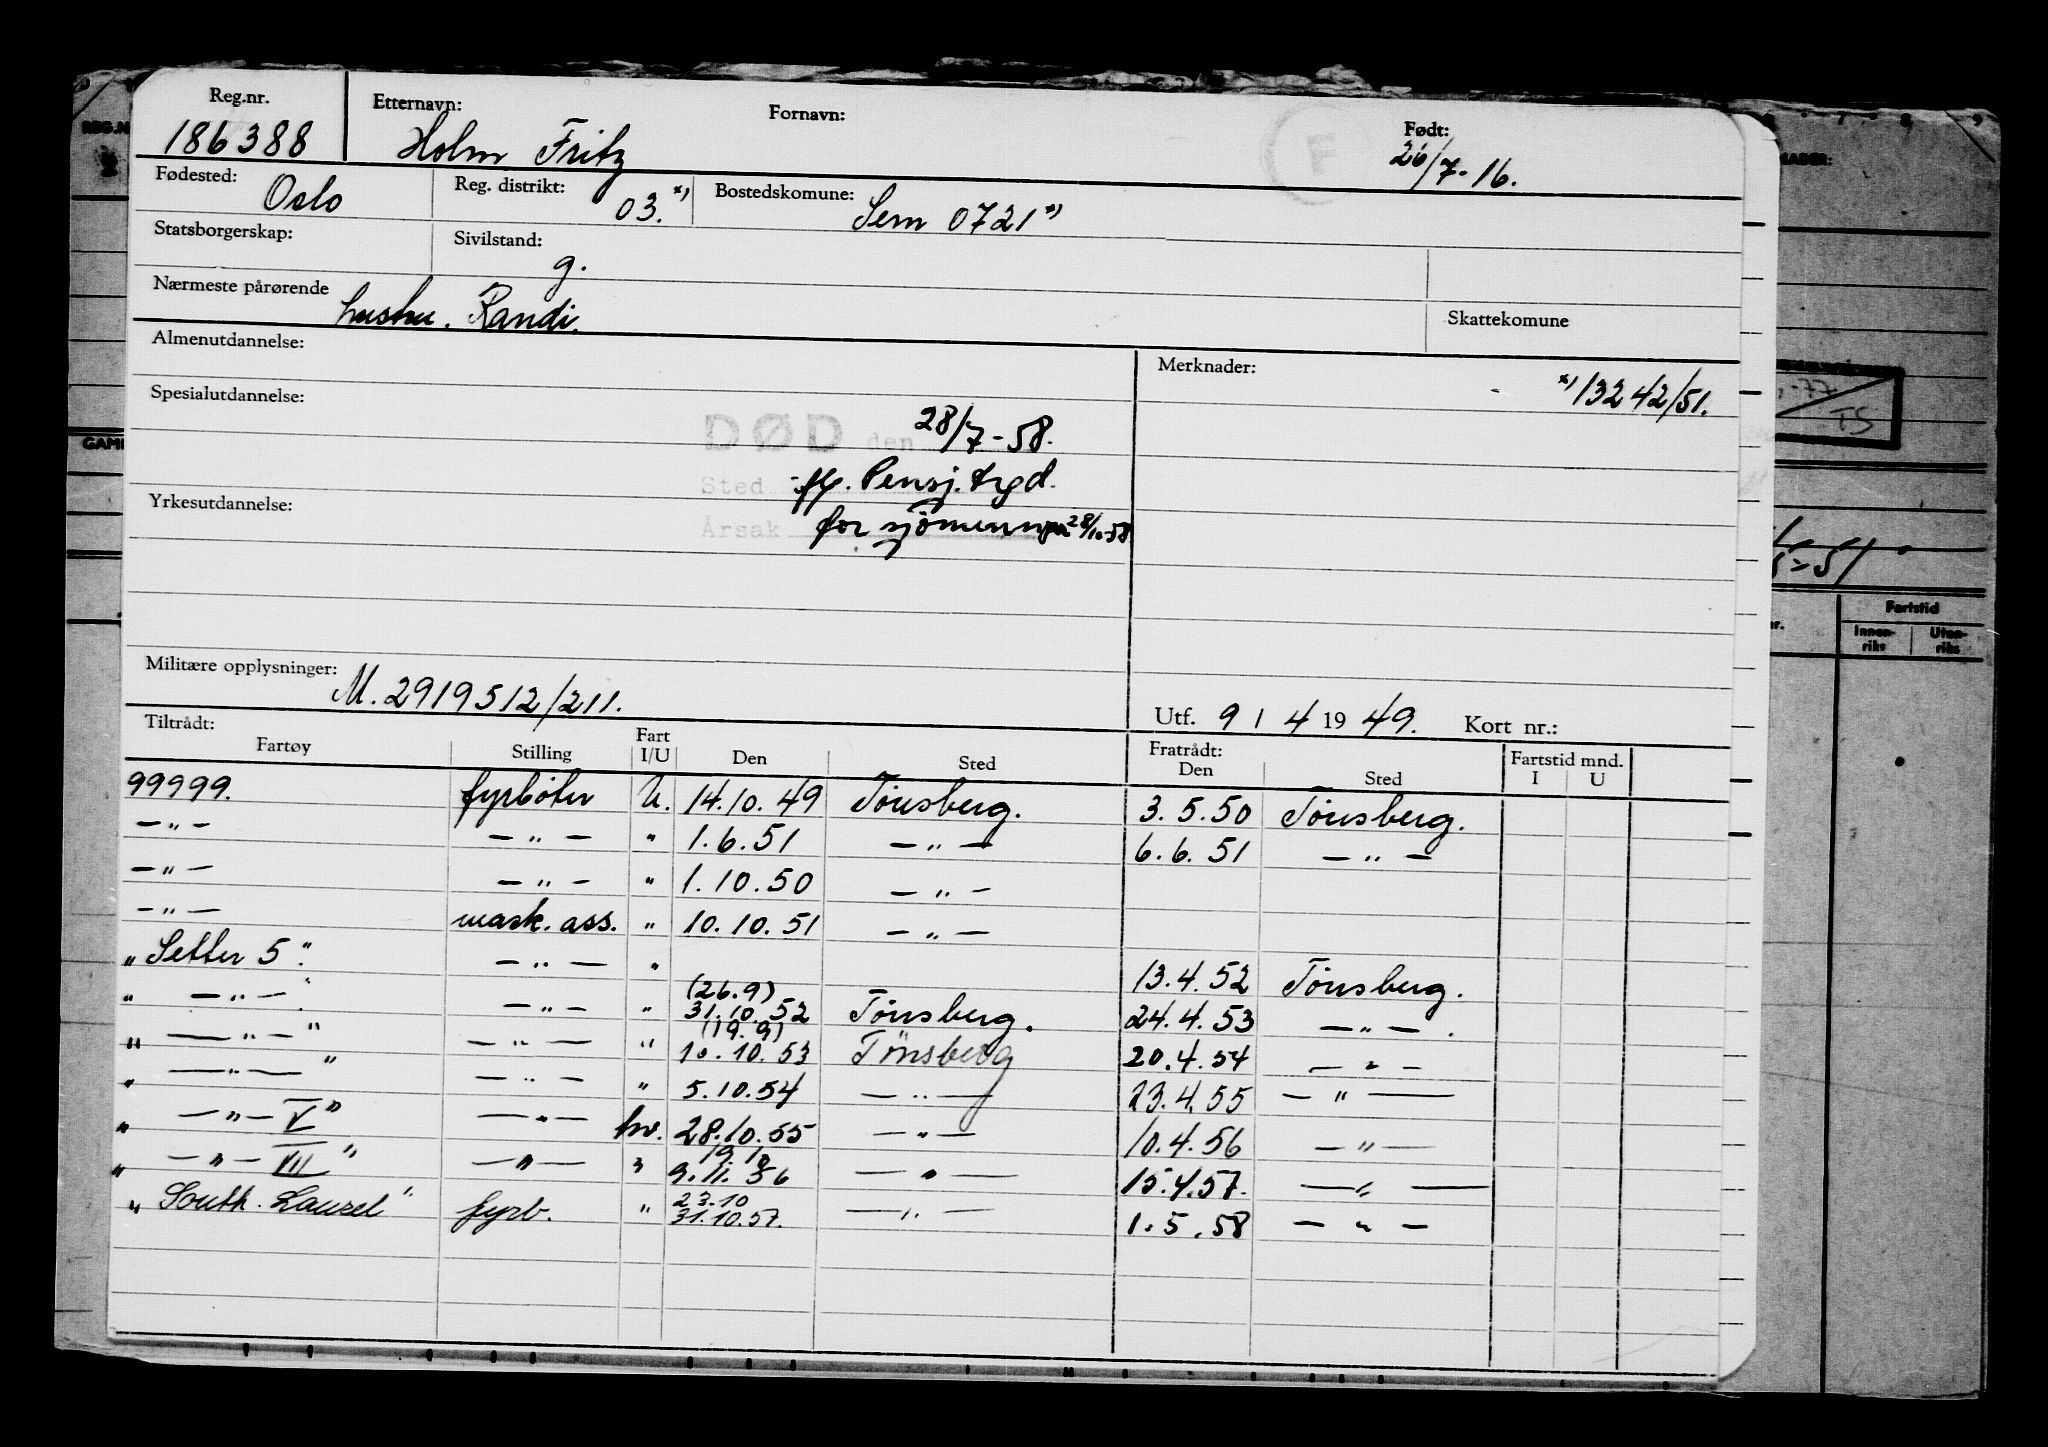 Reg.nr. Etternavn: Fornavn: Født:
186388 Holm Fritz 26/7-16.
Fødested: Oslo Reg. distrikt: 03.*) Bostedskomune: Sem 0721*)
Statsborgerskap: Sivilstand: g.
Nærmeste pårørende hustru. Randi. Skattekomune
Almenutdannelse: Merknader: *) 13242/51.
Spesialutdannelse: DØD den 28/7-58.
Sted flg. Pensj. trgd.
Yrkesutdannelse: Årsak for sjömenn 28/10-58
Militære opplysninger: M. 2919512/211.
Utf. 9 / 4 19 49. Kort nr.:
Tiltrådt: Fratrådt:
Fartøy Stilling Fart I/U Den Sted Den Sted Fartstid mnd. I U
99999. fyrbøter U. 14.10.49 Tønsberg. 3.5.50 Tønsberg.
— " — — " — " 1.6.51 — " — 6.6.51 — " —
— " — — " — " 1.10.50 — " —
— " — mask. ass. " 10.10.51 — " —
" Setter 5 " — " — " 13.4.52 Tønsberg.
" — " — " — " — " (26.9) 31.10.52 Tønsberg. 24.4.53 — " — .
" — " — " — " — " (19.9) 10.10.53 Tønsberg 20.4.54 — " —
" — " — " — " — " 5.10.54 — " — 23.4.55 — " —
" — " — V " — " — hv. 28.10.55 — " — 10.4.56 — " —
" — " — VII " — " — " 19.10 9.11.56 — " — 15.4.57. — " —
" South. Laurel " fyrb. " 23.10 31.10.57. — " — 1.5.58 — " —
F
GAM
-77
TS
Fartstid
Innen-riks Uten-riks